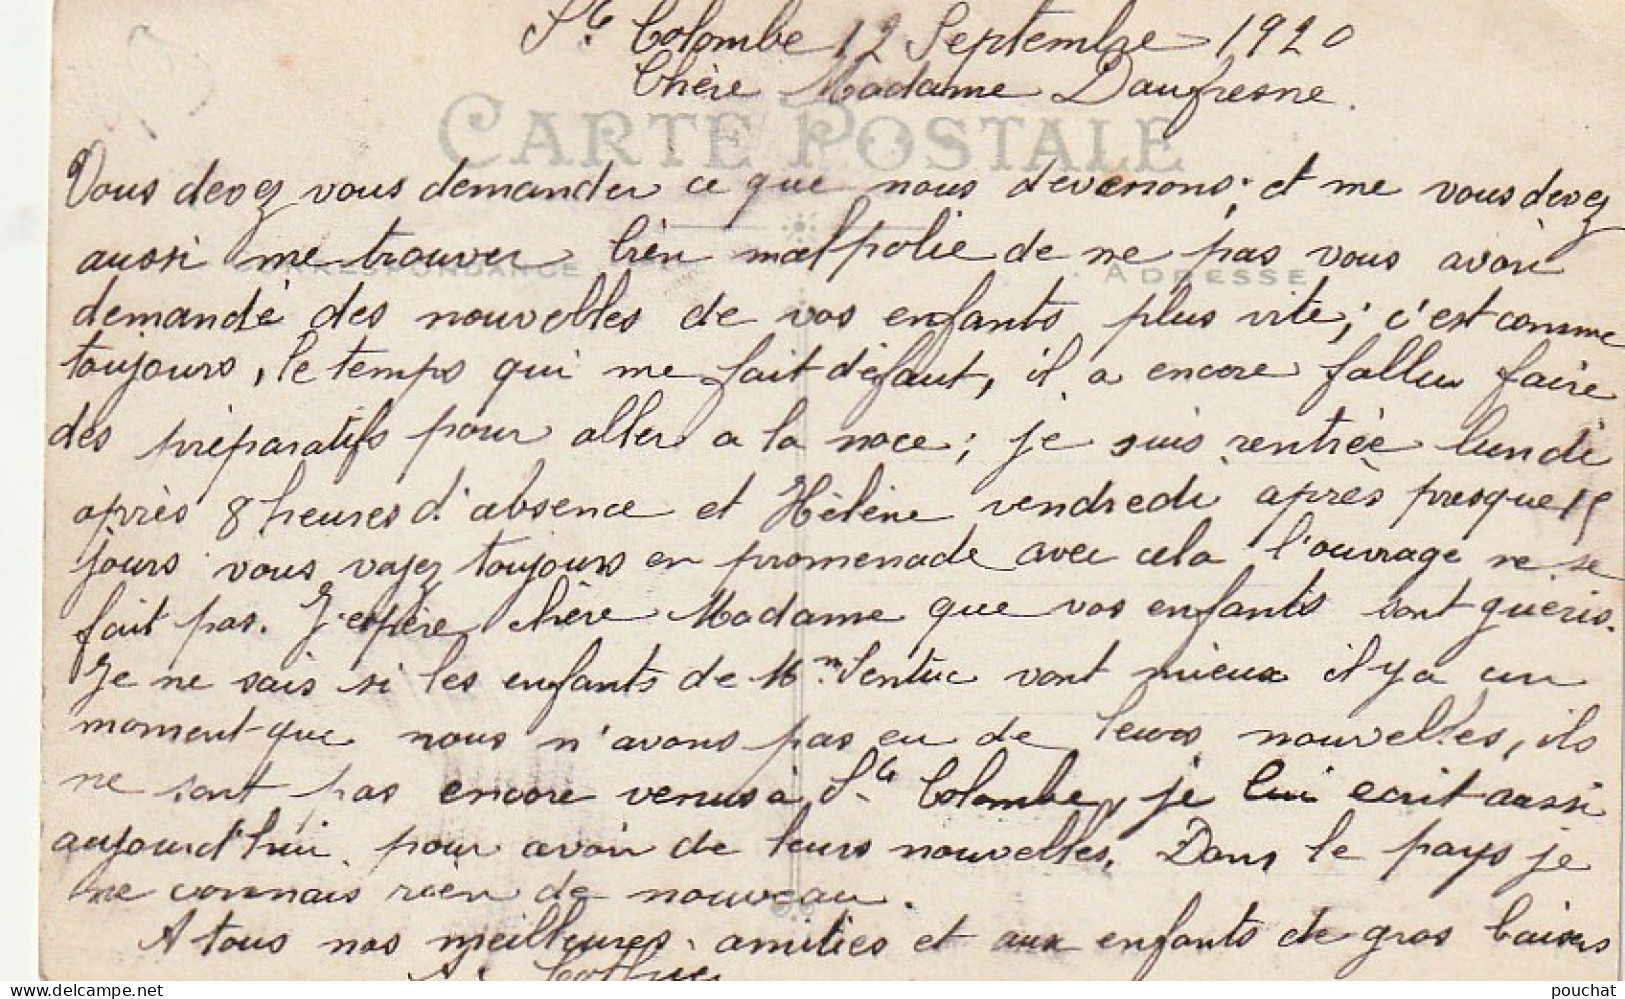 Ste Colombe 12 Septembre 1920
Chère Madame Daufresne.
CARTE POSTALE
Vous devez vous demander ce que nous devenons; et me vous devez
aussi me trouver bien malpolie de ne pas vous avoir
CORRESPONDANCE
ADRESSE
demandé des nouvelles de vos enfants plus vite; c'est comme
toujours, le temps qui me fait défaut, il a encore fallu faire
des préparatifs pour aller a la noce; je suis rentrée lundi
après 8 heures d'absence et Hélène vendredi après presque 15
jours vous voyez toujours en promenade avec cela l'ouvrage ne se
fait pas. J'espère chère Madame que vos enfants sont guéris.
Je ne sais si les enfants de Mm vont mieux il y a un
moment que nous n'avons pas eu de leurs nouvelles, ils
ne sont pas encore venus à Ste Colombe, je lui ecrit aussi
aujourd'hui pour avoir de leurs nouvelles. Dans le pays je
ne connais rien de nouveau.
A tous nos meilleures amitiés et aux enfants de gros baisers
pouchat